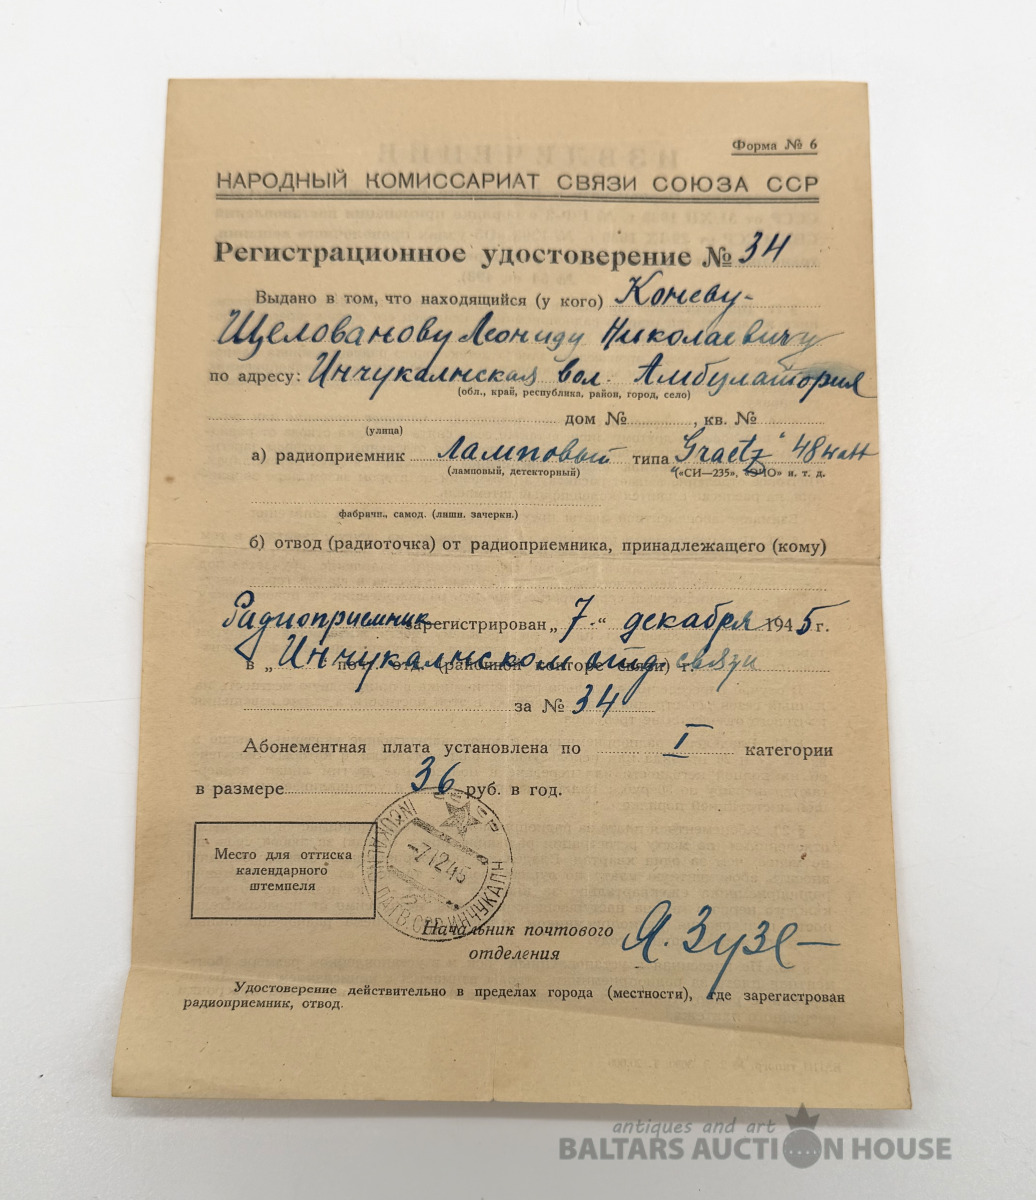 Форма № 6
НАРОДНЫЙ КОМИССАРИАТ СВЯЗИ СОЮЗА ССР
Регистрационное удостоверение № 34
Выдано в том, что находящийся (у кого) Коневу-
Щелованову Леониду Николаевичу
по адресу: Инчукалнская вол. Амбулатория
(обл., край, республика, район, город, село)
дом № , кв. №
(улица)
а) радиоприемник Ламповый типа Graetz "48
(ламповый, детекторный) («СИ—235», «ЭЧО» и. т. д.
фабричн., самод. (лишн. зачеркн.)
б) отвод (радиоточка) от радиоприемника, принадлежащего (кому)
Радиоприемник зарегистрирован „ 7 " декабря 1945 г.
в „ Инчукалнском отд. связи
почт. отд. (районной конторе связи) г.
за № 34
Абонементная плата установлена по I категории
в размере 36 руб. в год.
Место для оттиска
календарного
штемпеля
СССР
INČUKALNS
-7 12 45
ЛАТВ. ССР ИНЧУКАЛН
Начальник почтового
отделения
Удостоверение действительно в пределах города (местности), где зарегистрован
радиоприемник, отвод.
antiques and art
BALTARS AUCTION HOUSE